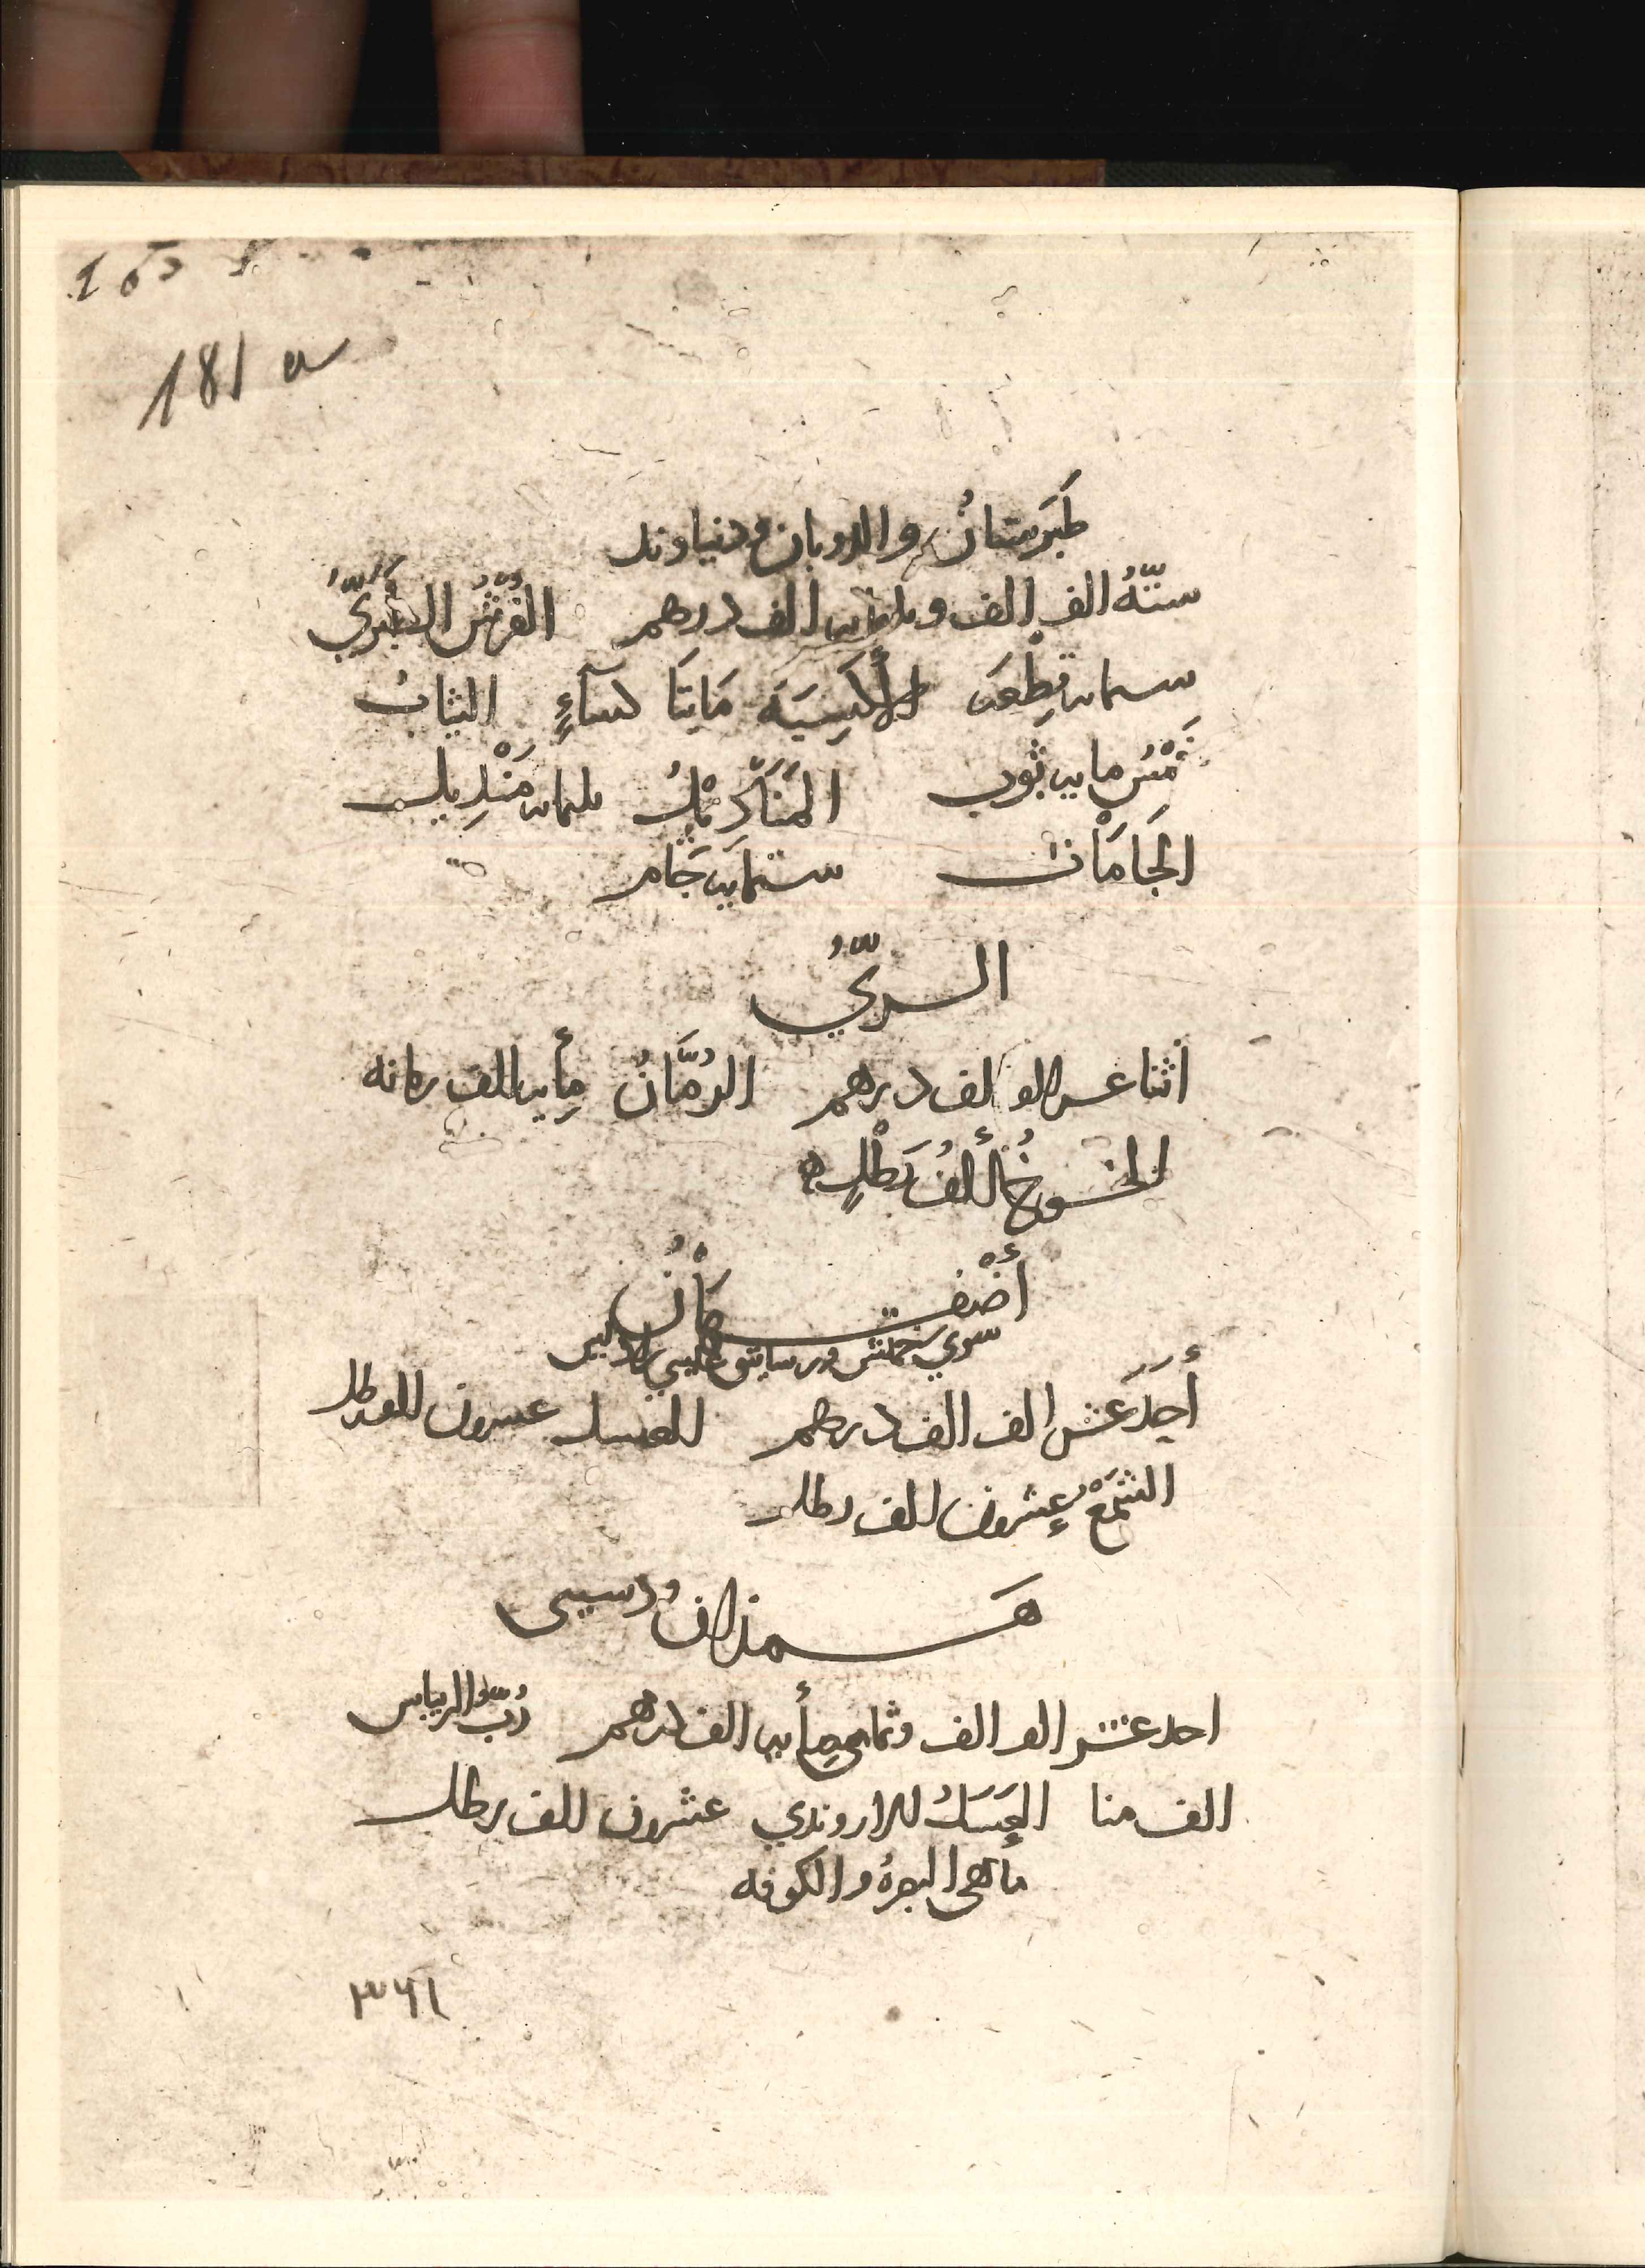 181 a
طَبَرِستانُ والرويان ودنياوند
ستّهُ الف الف وثلثمايه الف درهم الفُرُشُ الطَبَرِيُّ
ستمايه قِطْعَه الأَكسِيَه مَايتَا كساءٍ الثيابُ
خَمْسُ مايه ثوب المَنَادِيْلُ ثلثمايه مَنْدِيل
الجَامَات ستمايه جَام
الريُّ
اثنا عشر الف الف درهم الرُمَّانُ مِأيه الف رمانه
الخوخُ أَلفُ رَطْلٍ
أَصْفهَانُ
سوي خمسر ورساتيق
أَحَدَ عَشر الف الف درهم العسل عشرون الف رطل
الشمَعْ عِشرون الف رطل
همذان ودستبى
احد عشر الف الف وثماني مِأيه الف درهم رُبّ الريباس
الف منا العَسَلُ الاروندي عشرون الف رطل
ماهى البصرهُ والكوفه
٣٦١